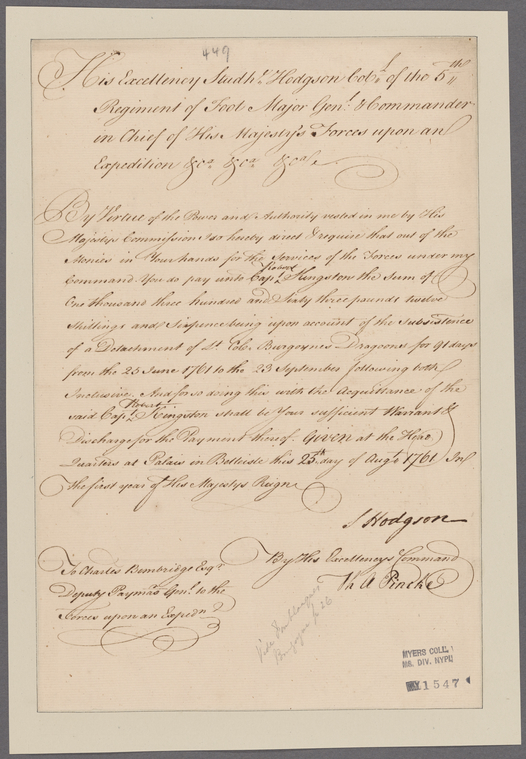 449
His Excellency Studh.ᵐ Hodgson Col.ˡ of the 5.ᵗʰ
Regiment of Foot Major Gen.ˡ & Commander
in Chief of His Majesty's Forces upon an
Expedition &c.ᵃ &c.ᵃ &c.ᵃ
By Virtue of the Power and Authority vested in me by His
Majestys Commission I do hereby direct & require that out of the
Monies in Your hands for the Services of the Forces under my
Command You do pay unto Cap.ᵗ Robert Kingston the Sum of
One thousand three hundred and Sixty three pounds twelve
Shillings and Sixpence being upon account of the Subsistence
of a Detachment of L.ᵗ Col. Burgoynes Dragoons for 91 days
from the 25 June 1761 to the 23 September following both
Inclusive. And for so doing this with the Acquittance of the
said Cap.ᵗ Robert Kingston shall be Your sufficient Warrant &
Discharge for the Payment thereof. Given at the Head
Quarters at Palais in Belleisle this 25.ᵗʰ day of Aug.ᵗ 1761 In
the first year of His Majestys Reign
S Hodgson
By His Excellencys Command
To Charles Bembridge Esq.ʳ
Deputy Paymas.ʳ Gen.ˡ to the
Forces upon an Exped.ⁿ
Vide
Burgoyne p. 26
MYERS COLL.
MS. DIV. NYPL
1547